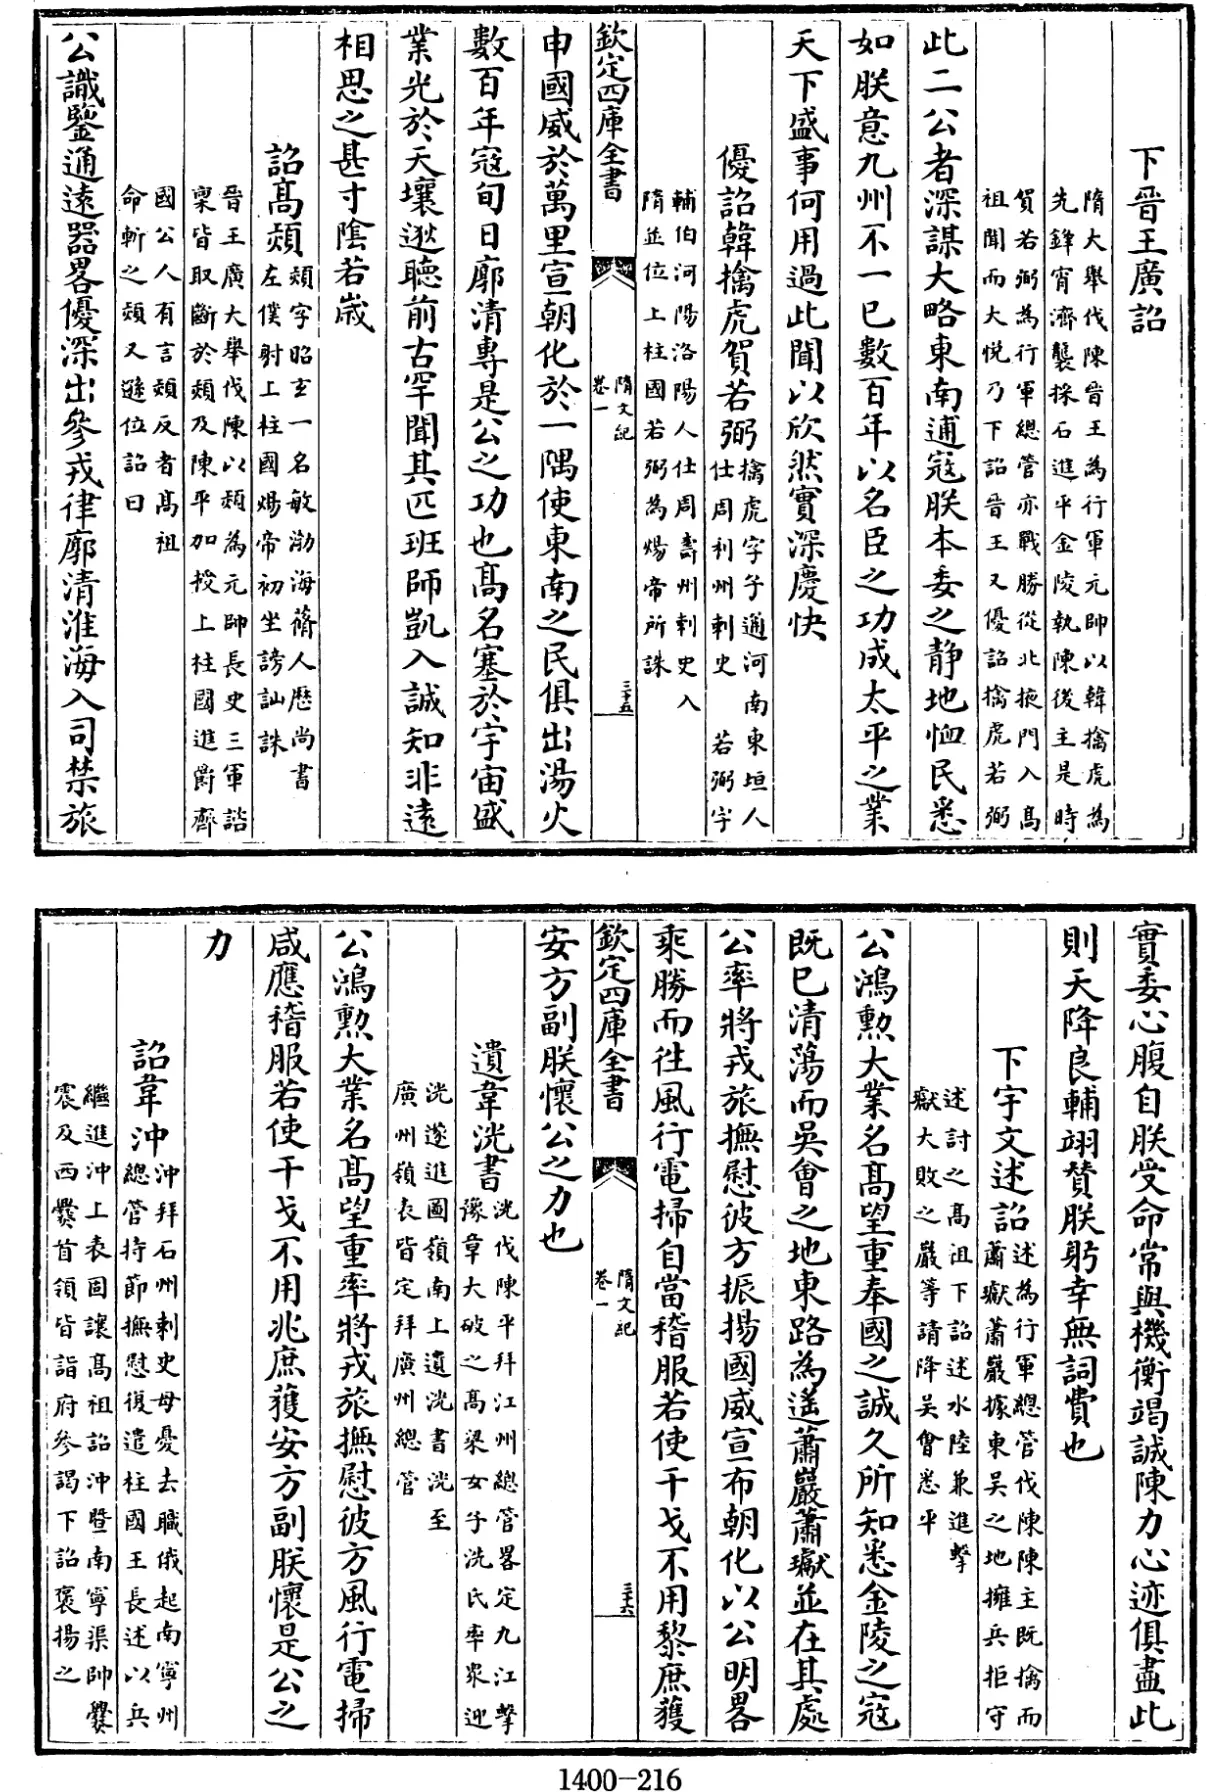 下晉王廣詔
隋大舉伐陳晉王為行軍元帥以韓擒虎為
先鋒宵濟襲採石進平金陵執陳後主是時
賀若弼為行軍總管亦戰勝從北掖門入髙
祖聞而大悦乃下詔晉王又優詔擒虎若弼
此二公者深謀大略東南逋寇朕本委之静地恤民悉
如朕意九州不一已數百年以名臣之功成太平之業
天下盛事何用過此聞以欣然實深慶快
優詔韓擒虎賀若弼
擒虎字子通河南東垣人
仕周利州刺史 若弼字
輔伯河陽洛陽人仕周壽州刺史入
隋並位上柱國若弼為煬帝所誅
欽定四庫全書
隋文紀
卷一
三十五
申國威於萬里宣朝化於一隅使東南之民俱出湯火
數百年寇旬日廓清專是公之功也髙名塞於宇宙盛
業光於天壤逖聽前古罕聞其匹班師凱入誠知非遠
相思之甚寸陰若嵗
詔髙熲
熲字昭玄一名敏渤海蓨人歴尚書
左僕射上柱國煬帝初坐謗訕誅
晉王廣大舉伐陳以熲為元帥長史三軍諮
稟皆取斷於熲及陳平加授上柱國進爵齊
國公人有言熲反者髙祖
命斬之熲又遜位詔曰
公識鑒通逺器畧優深出參戎律廓清淮海入司禁旅
實委心腹自朕受命常與機衡竭誠陳力心迹俱盡此
則天降良輔翊賛朕躬幸無詞費也
下宇文述詔
述為行軍總管伐陳陳主既擒而
蕭瓛蕭巖據東吴之地擁兵拒守
述討之髙祖下詔述水陸兼進擊
瓛大敗之巖等請降吴會悉平
公鴻勲大業名髙望重奉國之誠久所知悉金陵之寇
既已清蕩而吴會之地東路為遥蕭巖蕭瓛並在其處
公率將戎旅撫慰彼方振揚國威宣布朝化以公明畧
乘勝而往風行電掃自當稽服若使干戈不用黎庶獲
欽定四庫全書
隋文紀
卷一
三十六
安方副朕懷公之力也
遺韋洸書
洸伐陳平拜江州總管畧定九江擊
豫章大破之髙梁女子洗氏率衆迎
洸遂進圖嶺南上遺洸書洸至
廣州嶺表皆定拜廣州總管
公鴻勲大業名髙望重率將戎旅撫慰彼方風行電掃
咸應稽服若使干戈不用兆庶獲安方副朕懷是公之
力
詔韋沖
沖拜石州刺史母憂去職俄起南寧州
總管持節撫慰復遣柱國王長述以兵
繼進沖上表固讓髙祖詔沖暨南寧渠帥爨
震及西爨首領皆詣府參謁下詔褒揚之
1400-216